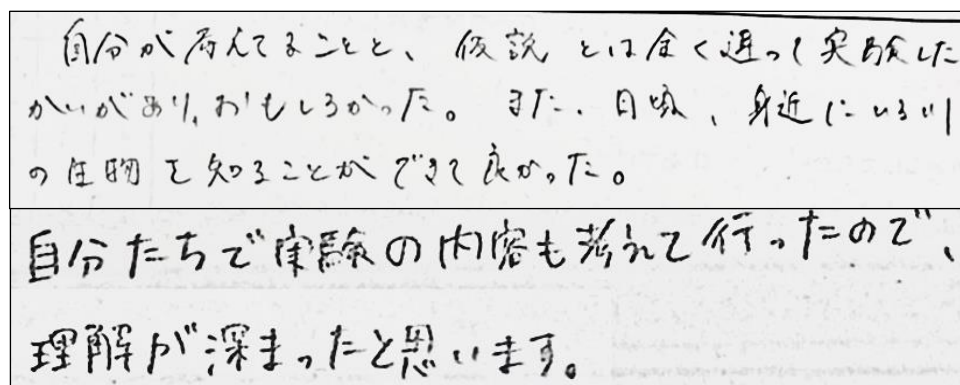 自分が考えてることと、仮説とは全く違って実験した
かいがあり、おもしろかった。また、日頃、身近にいる川
の生物を知ることができて良かった。
自分たちで実験の内容も考えて行ったので、
理解が深まったと思います。